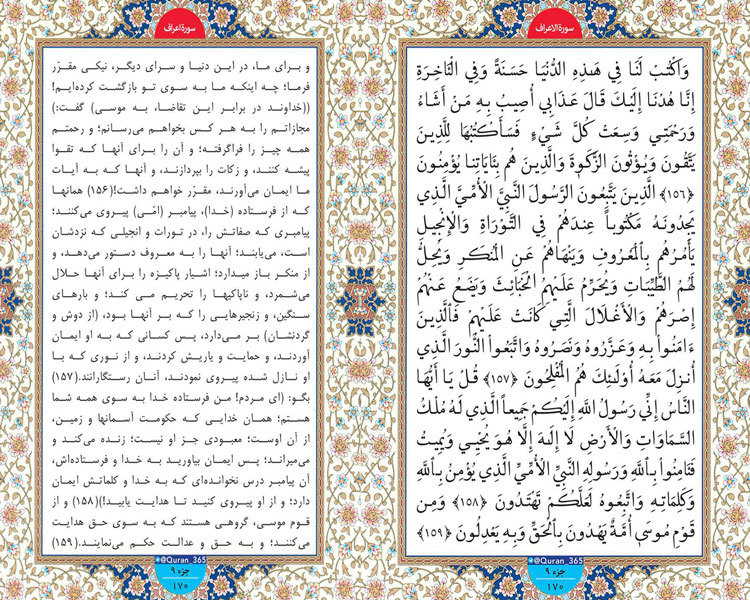 سورة الاعراف
وَاَكْتُبْ لَنَا فِي هَـٰذِهِ الدُّنْيَا حَسَنَةً وَفِي الْـَٔاخِرَةِ
إِنَّا هُدْنَا إِلَيْكَ قَالَ عَذَابِي أُصِيبُ بِهِ مَنْ أَشَاءُ
وَرَحْمَتِي وَسِعَتْ كُلَّ شَيْءٍ فَسَأَكْتُبُهَا لِلَّذِينَ
يَتَّقُونَ وَيُؤْتُونَ الزَّكَوٰةَ وَالَّذِينَ هُم بِـَٔايَاتِنَا يُؤْمِنُونَ
﴿١٥٦﴾ الَّذِينَ يَتَّبِعُونَ الرَّسُولَ النَّبِيَّ الْأُمِّيَّ الَّذِي
يَجِدُونَهُ مَكْتُوباً عِندَهُمْ فِي التَّوْرَاةِ وَالْإِنْجِيلِ
يَأْمُرُهُم بِالْمَعْرُوفِ وَيَنْهَاهُمْ عَنِ الْمُنكَرِ وَيُحِلُّ
لَهُمُ الطَّيِّبَاتِ وَيُحَرِّمُ عَلَيْهِمُ الْخَبَائِثَ وَيَضَعُ عَنْهُمْ
إِصْرَهُمْ وَالْأَغْلَالَ الَّتِي كَانَتْ عَلَيْهِمْ فَالَّذِينَ
ءَامَنُوا بِهِ وَعَزَّرُوهُ وَنَصَرُوهُ وَاتَّبَعُوا النُّورَ الَّذِي
أُنزِلَ مَعَهُ أُولَـٰئِكَ هُمُ الْمُفْلِحُونَ ﴿١٥٧﴾ قُلْ يَا أَيُّهَا
النَّاسُ إِنِّي رَسُولُ اللَّهِ إِلَيْكُمْ جَمِيعاً الَّذِي لَهُ مُلْكُ
السَّمَاوَاتِ وَالْأَرْضِ لَا إِلَـٰهَ إِلَّا هُوَ يُحْيِي وَيُمِيتُ
فَـَٔامِنُوا بِاللَّهِ وَرَسُولِهِ النَّبِيِّ الْأُمِّيِّ الَّذِي يُؤْمِنُ بِاللَّهِ
وَكَلِمَاتِهِ وَاتَّبِعُوهُ لَعَلَّكُمْ تَهْتَدُونَ ﴿١٥٨﴾ وَمِن
قَوْمِ مُوسَىٰ أُمَّةٌ يَهْدُونَ بِالْحَقِّ وَبِهِ يَعْدِلُونَ ﴿١٥٩﴾
@Quran_365
جزء ٩
١٧٠
سوره اعراف
و برای ما، در این دنیا و سرای دیگر، نیکی مقرّر
فرما؛ چه اینکه ما به سوی تو بازگشت کرده‌ایم!
((خداوند در برابر این تقاضا، به موسی) گفت:)
مجازاتم را به هر کس بخواهم می‌رسانم؛ و رحمتم
همه چیز را فراگرفته؛ و آن را برای آنها که تقوا
پیشه کنند، و زکات را بپردازند، و آنها که به آیات
ما ایمان می‌آورند، مقرّر خواهم داشت!(۱۵۶) همانها
که از فرستاده (خدا)، پیامبر (امّی) پیروی می‌کنند؛
پیامبری که صفاتش را، در تورات و انجیلی که نزدشان
است، می‌یابند؛ آنها را به معروف دستور می‌دهد، و
از منکر باز میدارد؛ اشیار پاکیزه را برای آنها حلال
می‌شمرد، و ناپاکیها را تحریم می کند؛ و بارهای
سنگین، و زنجیرهایی را که بر آنها بود، (از دوش و
گردنشان) بر می‌دارد، پس کسانی که به او ایمان
آوردند، و حمایت و یاریش کردند، و از نوری که با
او نازل شده پیروی نمودند، آنان رستگارانند.(۱۵۷)
بگو: (ای مردم! من فرستاده خدا به سوی همه شما
هستم؛ همان خدایی که حکومت آسمانها و زمین،
از آن اوست؛ معبودی جز او نیست؛ زنده می‌کند و
می‌میراند؛ پس ایمان بیاورید به خدا و فرستاده‌اش،
آن پیامبر درس نخوانده‌ای که به خدا و کلماتش ایمان
دارد؛ و از او پیروی کنید تا هدایت یابید!)(۱۵۸) و از
قوم موسی، گروهی هستند که به سوی حق هدایت
می‌کنند؛ و به حق و عدالت حکم می‌نمایند.(۱۵۹)
@Quran_365
جزء ۹
۱۷۰